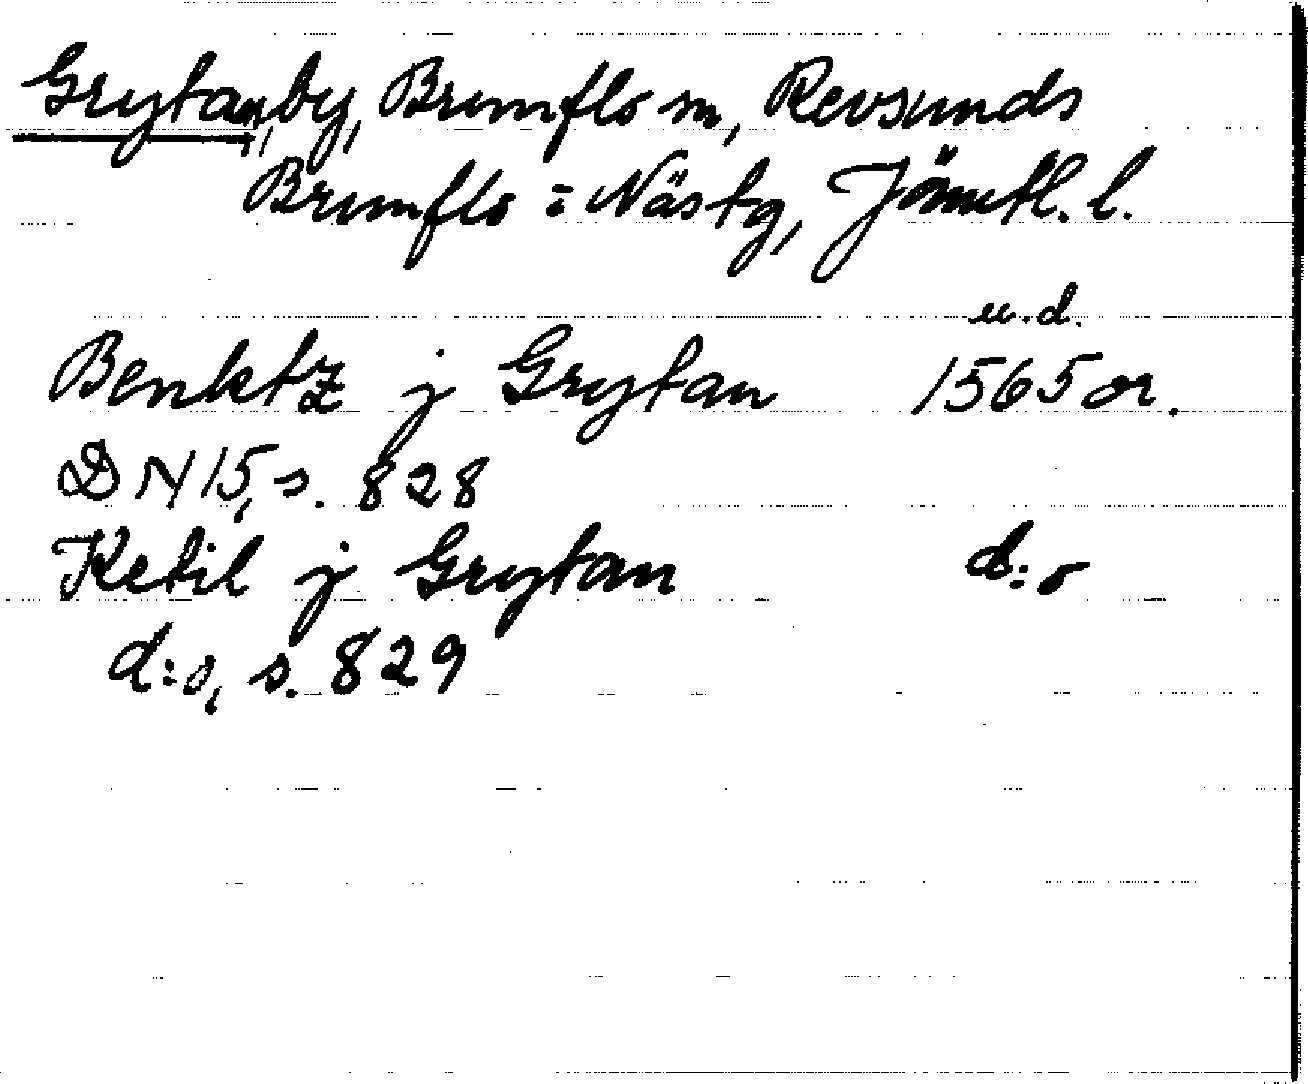 Grytan, by, Brunflo sn, Revsunds
Brunflo o Näs tg, Jämtl. l.
u.d.
Benktz j Grytan 1565 or.
DN 15, s. 828
Ketil j Grytan d:o
d:o, s. 829